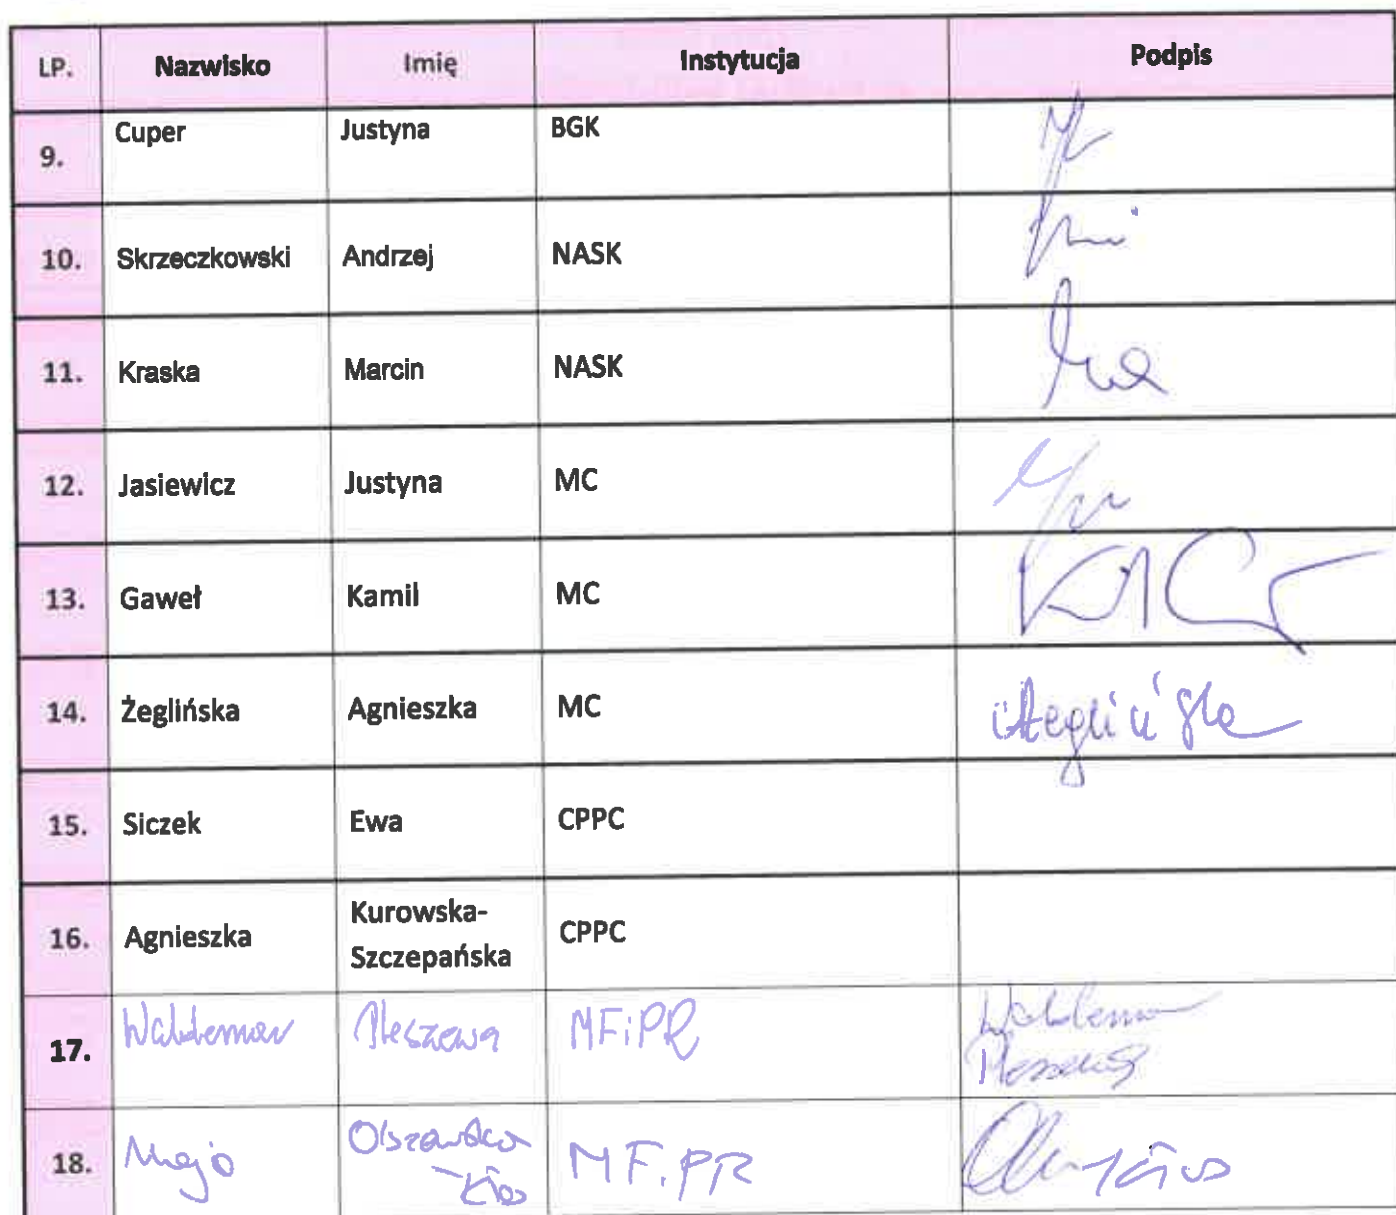 LP. Nazwisko Imię Instytucja Podpis
9. Cuper Justyna BGK
10. Skrzeczkowski Andrzej NASK
11. Kraska Marcin NASK
12. Jasiewicz Justyna MC
13. Gaweł Kamil MC
14. Żeglińska Agnieszka MC Żeglińska
15. Siczek Ewa CPPC
16. Agnieszka Kurowska-
Szczepańska CPPC
17. Waldemar MFiPR Waldemar
18. Maja Olszewska MF.PR